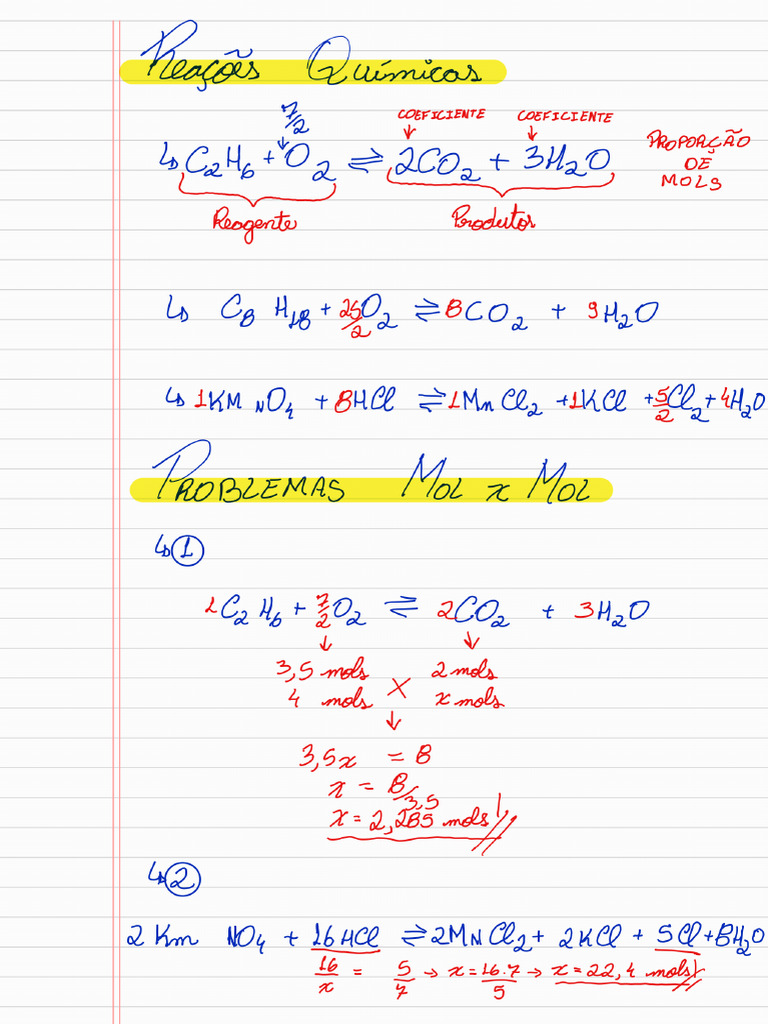 Reações Químicas
7/2 COEFICIENTE COEFICIENTE
↳ C2H6 + O2 ⇌ 2CO2 + 3H2O PROPORÇÃO DE MOLS
Reagente Produtos
↳ C8 H18 + 25/2 O2 ⇌ 8CO2 + 9H2O
↳ 1KM NO4 + 8HCl ⇌ 1Mn Cl2 + 1KCl + 5/2 Cl2 + 4H2O
PROBLEMAS MOL x MOL
↳ 1
1C2H6 + 7/2 O2 ⇌ 2CO2 + 3H2O
3,5 mols 2 mols
4 mols x mols
3,5x = 8
x = 8/3,5
x = 2,285 mols
↳ 2
2 Km NO4 + 16HCl ⇌ 2MNCl2 + 2KCl + 5Cl + 8H2O
16/x = 5/7 → x = 16.7/5 → x = 22,4 mols